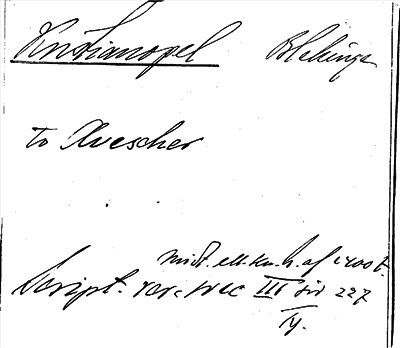 Kristianopel Blekinge
to Avescher
midt. ell. kn. h. af 1400 t.
Script. rer. svec III sid 227